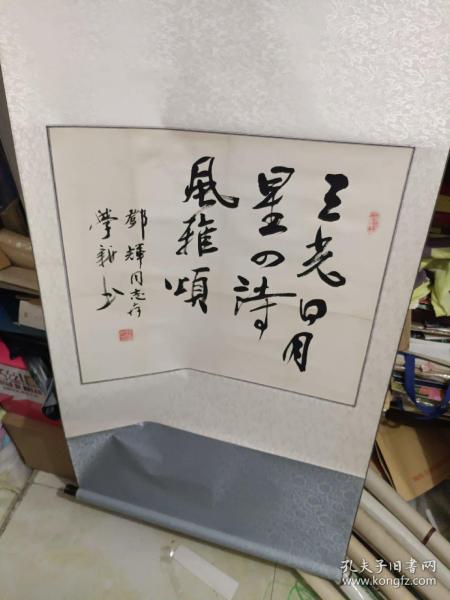 三光日月
星四詩
風雅頌
鄧輝同志存
學新书
孔夫子旧书网
www.kongfz.com